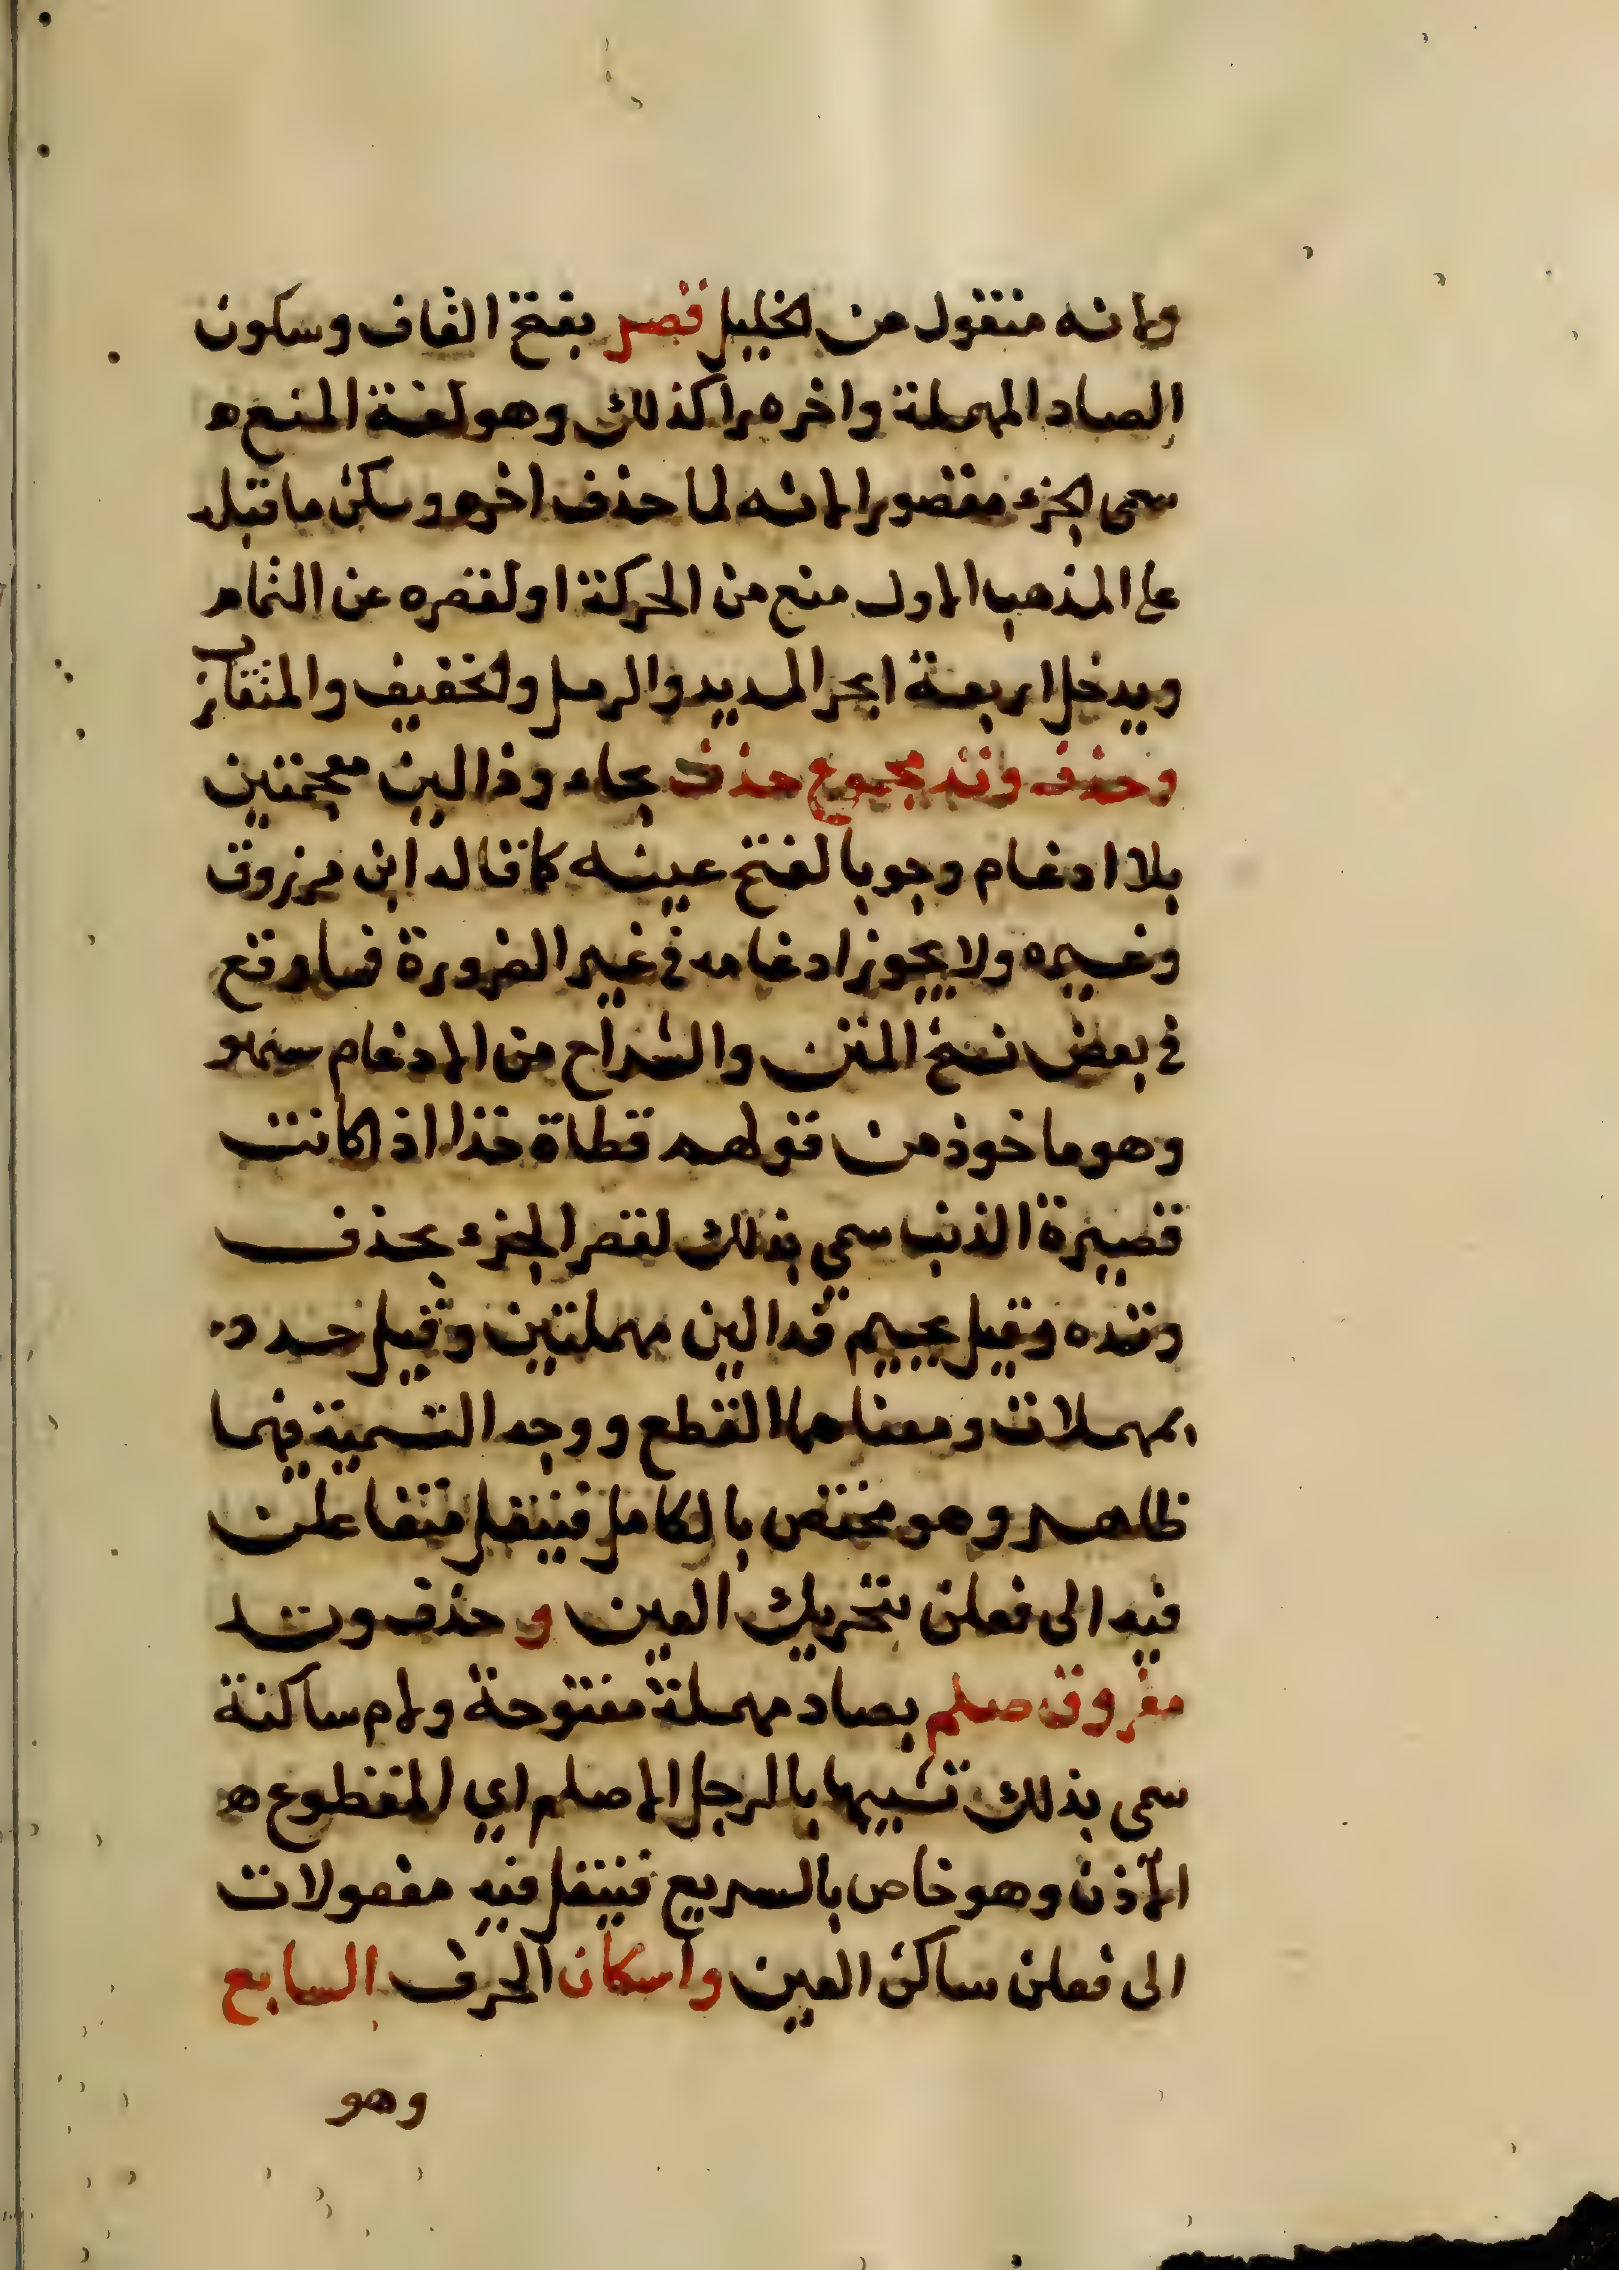 ولانه منقول من الخليل قصر بفتح القاف وسكون
الصاد المهملة واخره را كذلك وهو لغة المنع ه
سمي الجزء مقصورا لانه لما حذف اخره وسكن ما قبله
على المذهب الاول منع من الحركة او لقصره عن التمام
ويدخل اربعة ابحر المديد والرمل والخفيف والمتقارب
وحذف وتد مجموع حذذ بحاء وذالين معجمتين
بلا ادغام وجوبا لفتح عينه كما قاله ابن مرزوق
وغيره ولا يجوز ادغامه في غير الضرورة فما وقع
في بعض نسخ المتن والشراح من الادغام سهو
وهو ماخوذ من قولهم قطاة حذا اذا كانت
قصيرة الذنب سمي بذلك لقصر الجزء بحذف
وتده وقيل بجيم فدالين مهملتين وقيل حدد
بمهملات ومعناهما القطع ووجه التسمية فيهما
ظاهر وهو مختص بالكامل فينقل متفاعلن
فيه الى فعلن بتحريك العين و حذف وتد
مفروق صلم بصاد مهملة مفتوحة ولام ساكنة
سمى بذلك تشبيها بالرجل الاصلم اي المقطوع ه
الاذن وهو خاص بالسريع فينقل فيه مفعولات
الى فعلن ساكن العين واسكان الحرف السابع
وهو